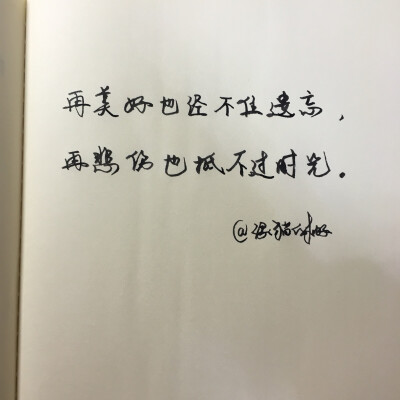 再美好也经不住遗忘，
再悲伤也抵不过时光。